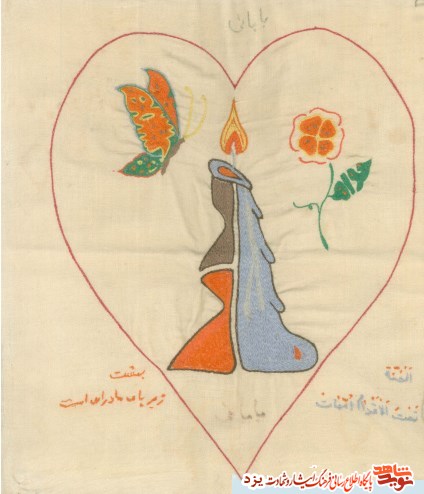 بابائی
الجنة
تحت الاقدام امهات
بهشت
زیر پای مادران است
نوید شاهد
پایگاه اطلاع رسانی فرهنگ ایثار و شهادت یزد